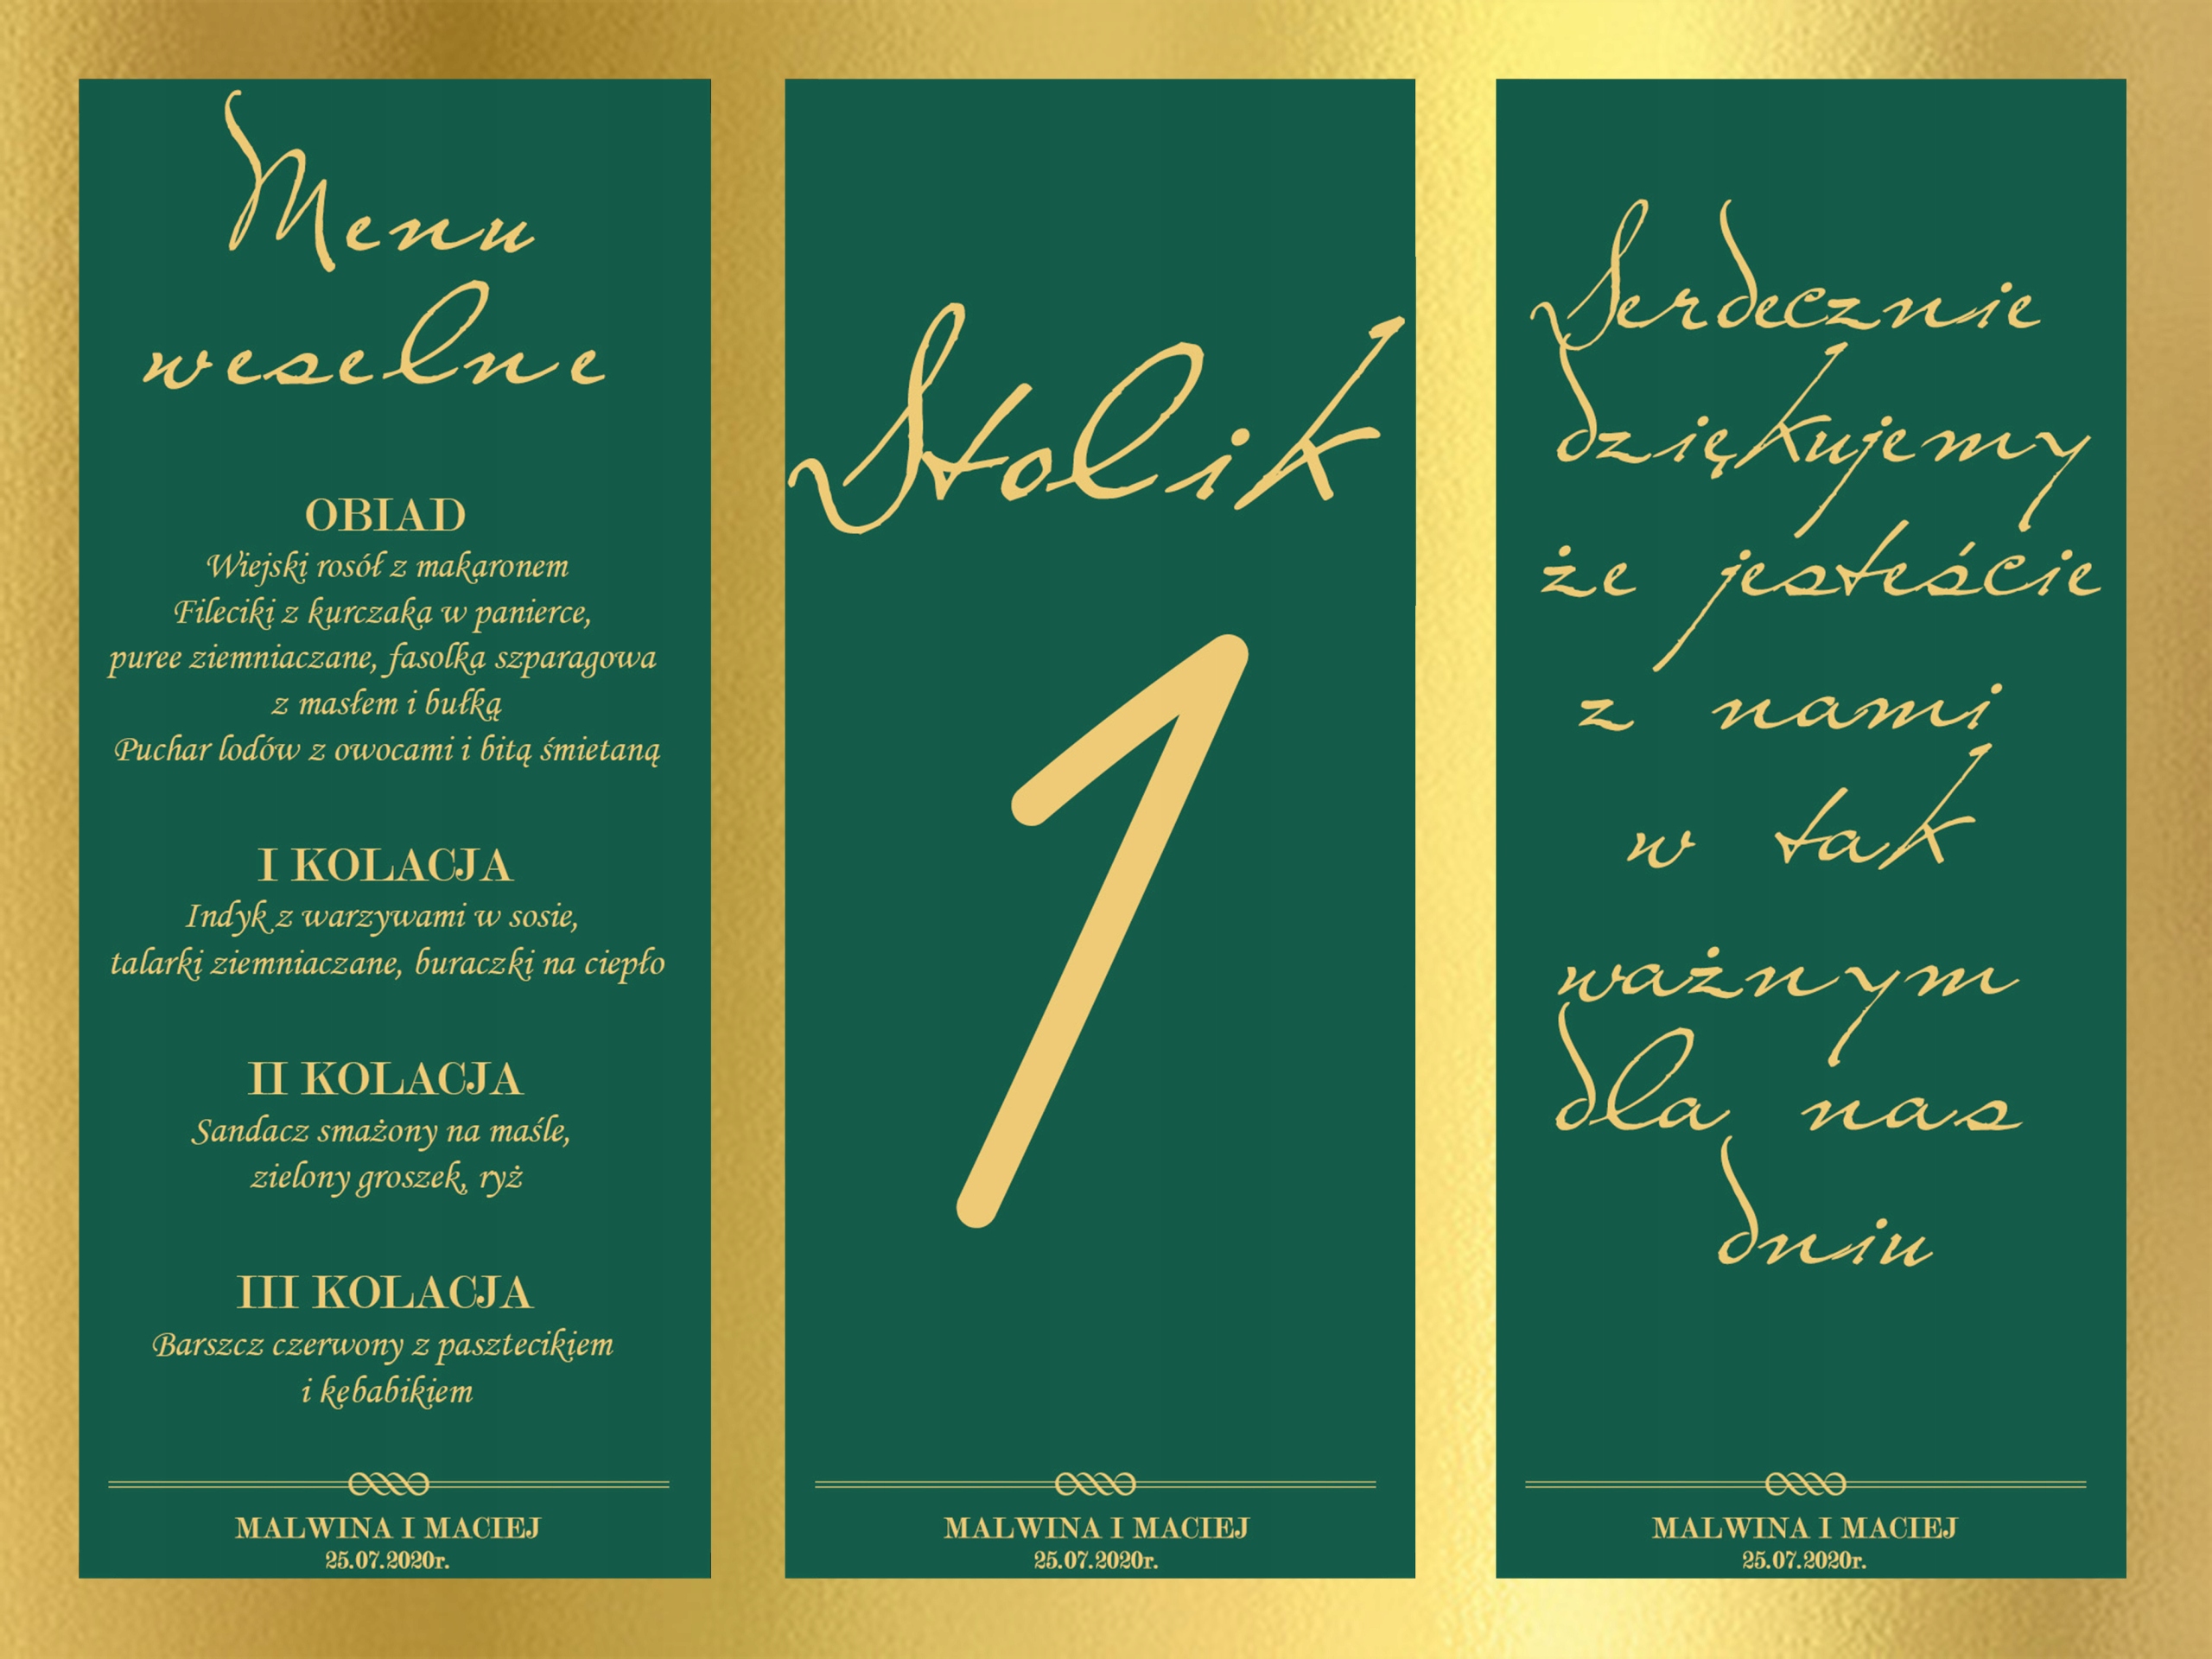 Menu
weselne
OBIAD
Wiejski rosół z makaronem
Fileciki z kurczaka w panierce,
puree ziemniaczane, fasolka szparagowa
z masłem i bułką
Puchar lodów z owocami i bitą śmietaną
I KOLACJA
Indyk z warzywami w sosie,
talarki ziemniaczane, buraczki na ciepło
II KOLACJA
Sandacz smażony na maśle,
zielony groszek, ryż
III KOLACJA
Barszcz czerwony z pasztecikiem
i kebabikiem
MALWINA I MACIEJ
25.07.2020r.
Stolik
1
MALWINA I MACIEJ
25.07.2020r.
Serdecznie
dziękujemy
że jesteście
z nami
w tak
ważnym
dla nas
dniu
MALWINA I MACIEJ
25.07.2020r.